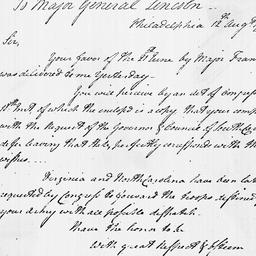 To Major General Lincoln
Philadelphia 12th Augt
Sir,
Your favor of the June by Major Fran
was delivered to me Yesterday.
You will perceive by an act of Congress
of which the enclosed is a copy that your
with the Request of the Governor & Council of South
defer leaving that the perfectly correspond with the
wishes
Virginia and North Carolina have been
requested by Congress to forward the troops destined
your Army with all possible dispatch.
I have the honor to be
With great Respect & Esteem